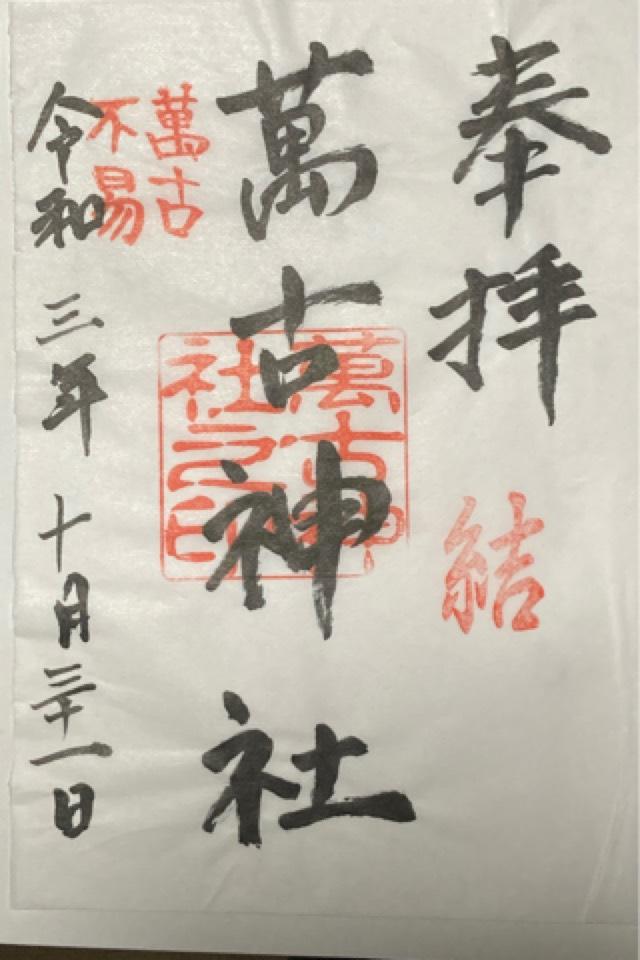 奉拝
結
萬古神社
萬古神社之印
萬古
不易
令和三年十月三十一日